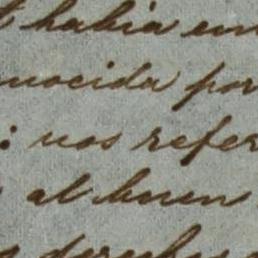 había en
nocida por
: nos refer
al buen